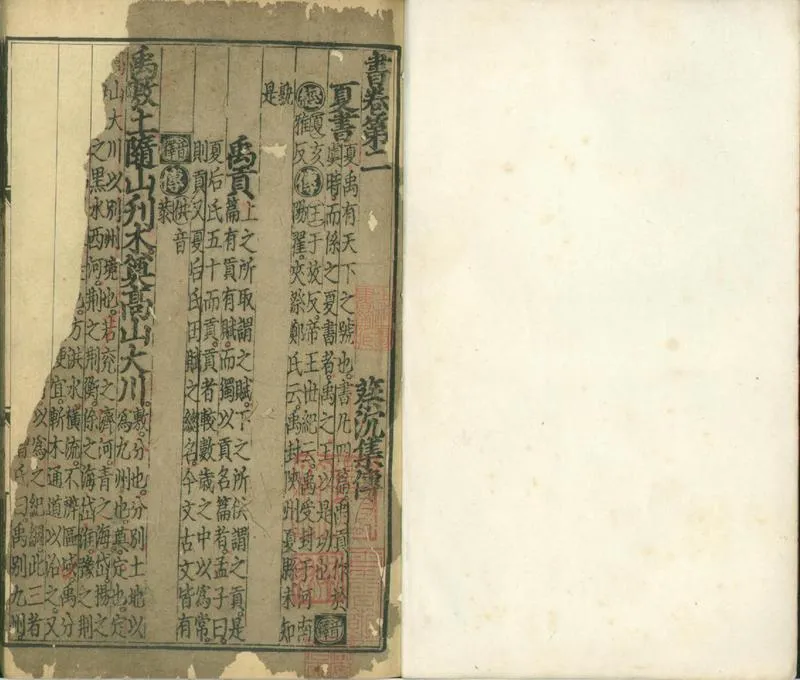 書卷第二　蔡沉集傳
夏書
夏禹有天下之號也。書凡四篇。禹貢作於
虞時而係之夏書者。禹之王以是功也
音釋
經 夏亥
雅反
傳 王于放反。帝王世紀云。禹受封于河南
陽翟。夾漈鄭氏云。禹封陜州夏縣。未知
孰
是
禹貢
上之所取謂之賦。下之所供謂之貢。是
篇有貢有賦。而獨以貢名篇者。孟子曰。
夏后氏五十而貢。貢者較數歲之中以爲常。
則貢又夏后氏田賦之總名。今文古文皆有
音釋 傳 供音
恭
禹敷土隨山刋木奠高山大川。
敷。分也。分別土地以
爲九州也。奠。定也。定
山大川以別州境也。若兗之濟河。青之海岱。揚之
之黑水西河。荊之荊衡。徐之海岱淮。豫之荊
也。方洪水橫流。不辨區域。禹分
便宜。斬木通道以治之。又
以爲之紀綱。此三者
氏曰。禹別九州